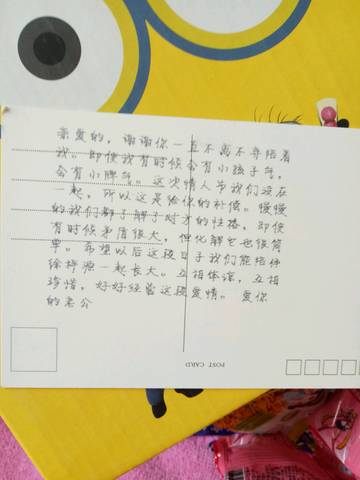 亲爱的，谢谢你一直不离不弃陪着
我。即使我有时候会有小孩子气，
会有小脾气。这次情人节我们没在
一起，所以这是给你的补偿。慢慢
的我们了解了对方的性格，即使
有时候矛盾很大，但化解它也很简
单。希望以后这段日子我们能陪伴
徐梓 一起长大。互相体谅，互相
珍惜，好好经营这段爱情。 爱你
的老公
POST CARD